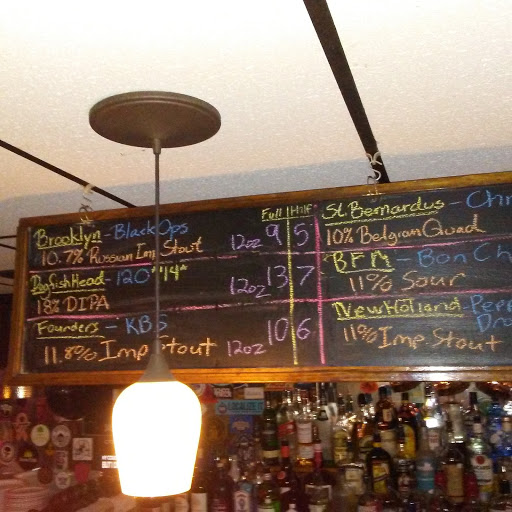 Full Half
Brooklyn - Black Ops
10.7% Russian Imp Stout 12oz 9 5
Dogfish Head - 120 "14"
18% DIPA 12oz 13 7
Founders - KBS
11.8% Imp Stout 12oz 10 6
St. Bernardus - Chr
10% Belgian Quad
BFM - Bon Ch
11% Sour
New Holland - Pepp
Dra
11% Imp Stout